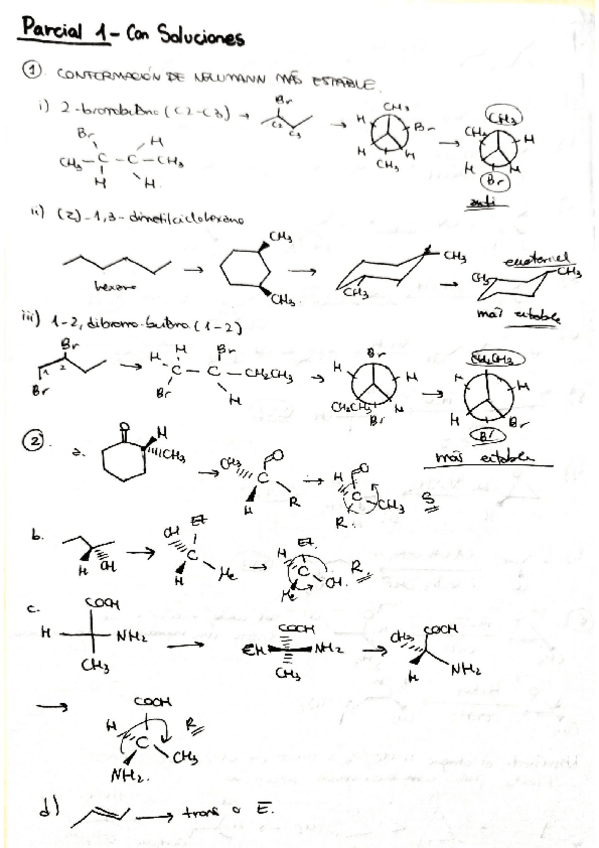 Parcial 1 - Con Soluciones
① CONFORMACIÓN DE NEWMANN MÁS ESTABLE.
i) 2-bromobutano (C2-C3) →
Br
C2
C3
CH3
H
Br
H
H
CH3
CH3
CH3
H
H
H
Br
anti
Br
H
CH3 - C - C - CH3
H
H
ii) (Z)-1,3-dimetilciclohexano
hexano
CH3
CH3
CH3
CH3
ecuatorial
CH3
CH3
más estable
iii) 1-2, dibromo-butano (1-2)
Br
1 2
Br
H
Br
H - C - C - CH2CH3
Br
H
Br
H
H
CH2CH3
H
Br
CH2CH3
H
H
H
Br
Br
más estable
②
a.
O
H
CH3
CH3
O
C
H
R
H
O
C
CH3
R
S
b.
H
OH
Et
OH
C
H
Me
Et
H
C
OH
Me
R
c.
COOH
H
NH2
CH3
COOH
NH2
CH3
COOH
CH3
H
NH2
COOH
H
C
CH3
NH2
R
d)
→ trans o E.